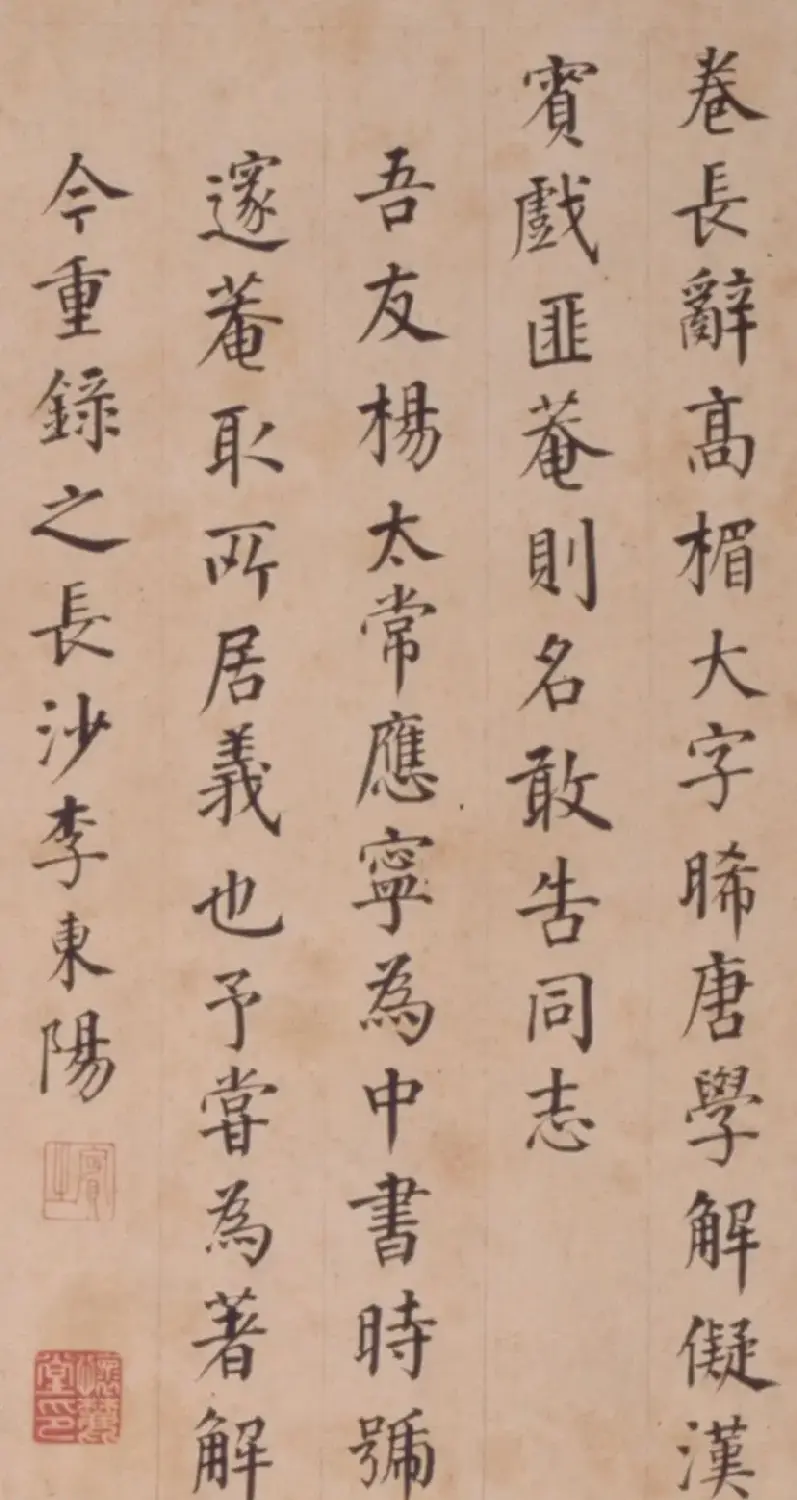 卷長辭高楣大字睎唐學解儗漢
賓戲匪菴則名敢告同志
吾友楊太常應寧為中書時號
邃菴取所居義也予嘗為著解
今重錄之長沙李東陽
賓之
懷麓堂印